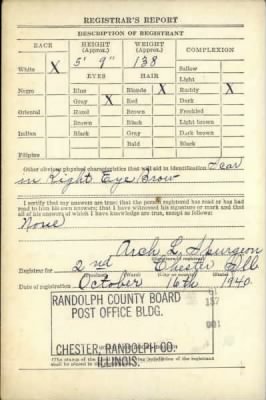 REGISTRAR'S REPORT
DESCRIPTION OF REGISTRANT
RACE HEIGHT (Approx.) WEIGHT (Approx.) COMPLEXION
5' 9" 138
White X Sallow
EYES HAIR Light
Negro Blue Blonde X Ruddy X
Gray X Red Dark
Oriental Hazel Brown Freckled
Brown Black Light brown
Indian Black Gray Dark brown
Bald Black
Filipino
Other obvious physical characteristics that will aid in identification Scar
in Right Eye Brow
I certify that my answers are true; that the person registered has read or has had
read to him his own answers; that I have witnessed his signature or mark and that
all of his answers of which I have knowledge are true, except as follows:
None
Arch L. Spurgeon
Registrar for 2nd Chester Ill
Date of registration October 16th 1940
RANDOLPH COUNTY BOARD
POST OFFICE BLDG.
CHESTER, RANDOLPH CO.
ILLINOIS.